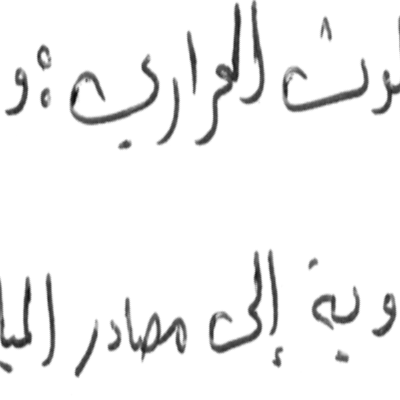 لوث الحراري: و
وية إلى مصادر الميا